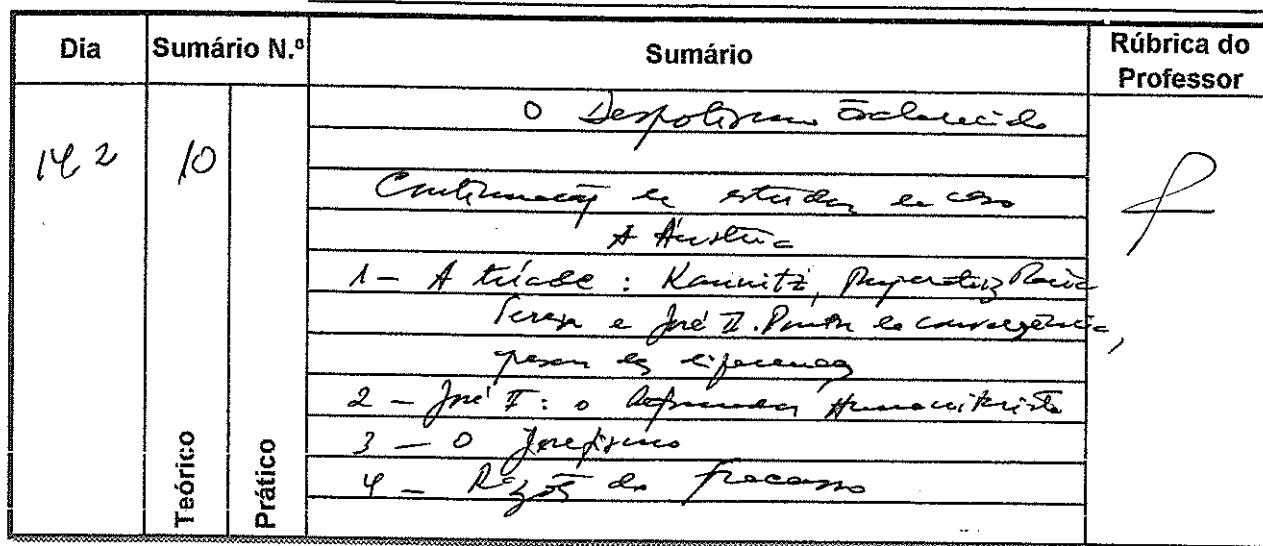 Dia Sumário N.º Sumário Rúbrica do Professor
14 2 10
O Despotismo Esclarecido
Continuação de estudos de caso
A Áustria
1 - A tríade : Kaunitz, Imperatriz Maria
Teresa e José II. Pontos de convergência,
apesar das diferenças
2 - José II : o Reformador Humanitarista
3 - O Josefismo
4 - Razões do fracasso
Teórico
Prático